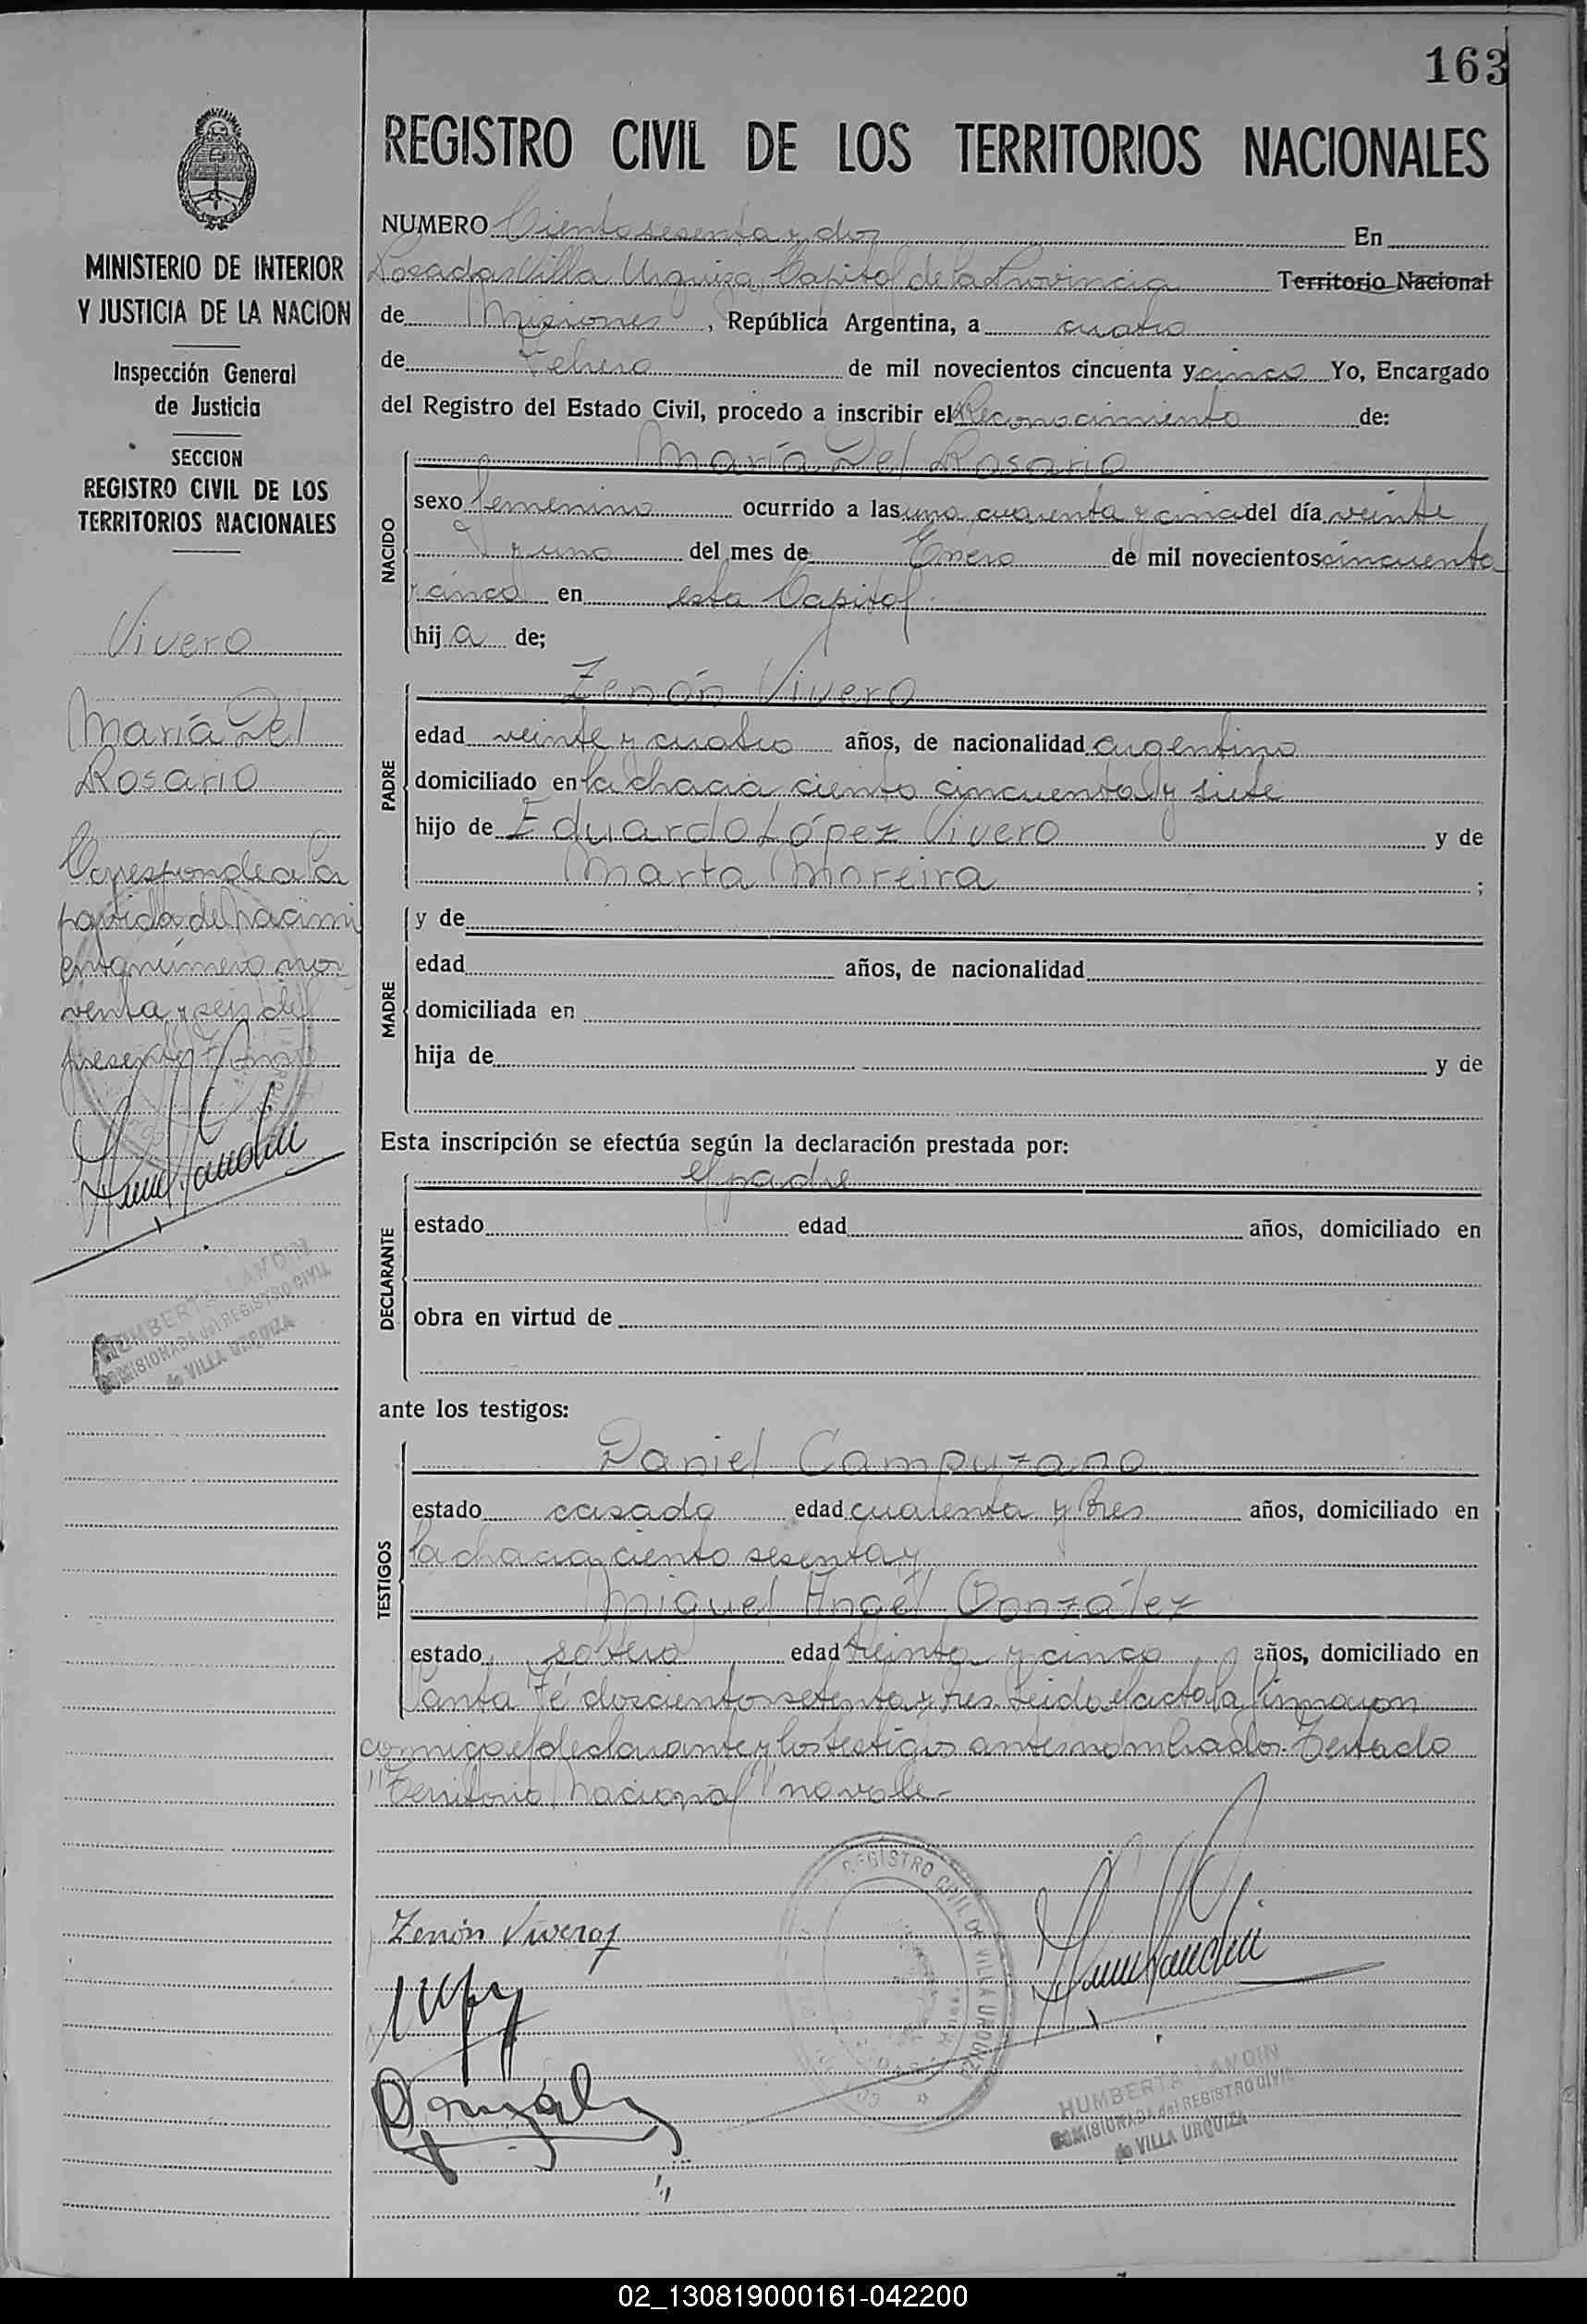 163
REGISTRO CIVIL DE LOS TERRITORIOS NACIONALES
NUMERO Ciento sesenta y dos En
Posadas Villa Urquiza, Capital de la Provincia Territorio Nacional
de Misiones, República Argentina, a cuatro
de Febrero de mil novecientos cincuenta y cinco Yo, Encargado
del Registro del Estado Civil, procedo a inscribir el Reconocimiento de:
NACIDO
María Del Rosario
sexo femenino ocurrido a las una cuarenta y cinco del día veinte
y uno del mes de Enero de mil novecientos cincuenta
y cinco en esta Capital
hija de;
PADRE
Zenón Vivero
edad veinte y cuatro años, de nacionalidad argentino
domiciliado en la chacra ciento cincuenta y siete
hijo de Eduardo López Vivero y de
Marta Moreira ;
MADRE
y de
edad años, de nacionalidad
domiciliada en
hija de y de
Esta inscripción se efectúa según la declaración prestada por:
DECLARANTE
el padre
estado edad años, domiciliado en
obra en virtud de
ante los testigos:
TESTIGOS
Daniel Campuzano
estado casado edad cuarenta y tres años, domiciliado en
la chacra ciento sesenta y
Miguel Angel González
estado soltero edad treinta y cinco años, domiciliado en
Santa Fé doscientos setenta y tres. Leida el acta la firmaron
conmigo el declarante y los testigos antes nombrados. Testado
"Territorio Nacional" no vale-
Zenón Vivero
González
REGISTRO CIVIL DE VILLA URQUIZA
HUMBERTA LANDIN
COMISIONADA del REGISTRO CIVIL
de VILLA URQUIZA
MINISTERIO DE INTERIOR
Y JUSTICIA DE LA NACION
Inspección General
de Justicia
SECCION
REGISTRO CIVIL DE LOS
TERRITORIOS NACIONALES
Vivero
María Del
Rosario
Corresponde a la
partida de nacimi
ento número no-
venta y seis del
presente tomo
HUMBERTA LANDIN
COMISIONADA del REGISTRO CIVIL
de VILLA URQUIZA
02_130819000161-042200